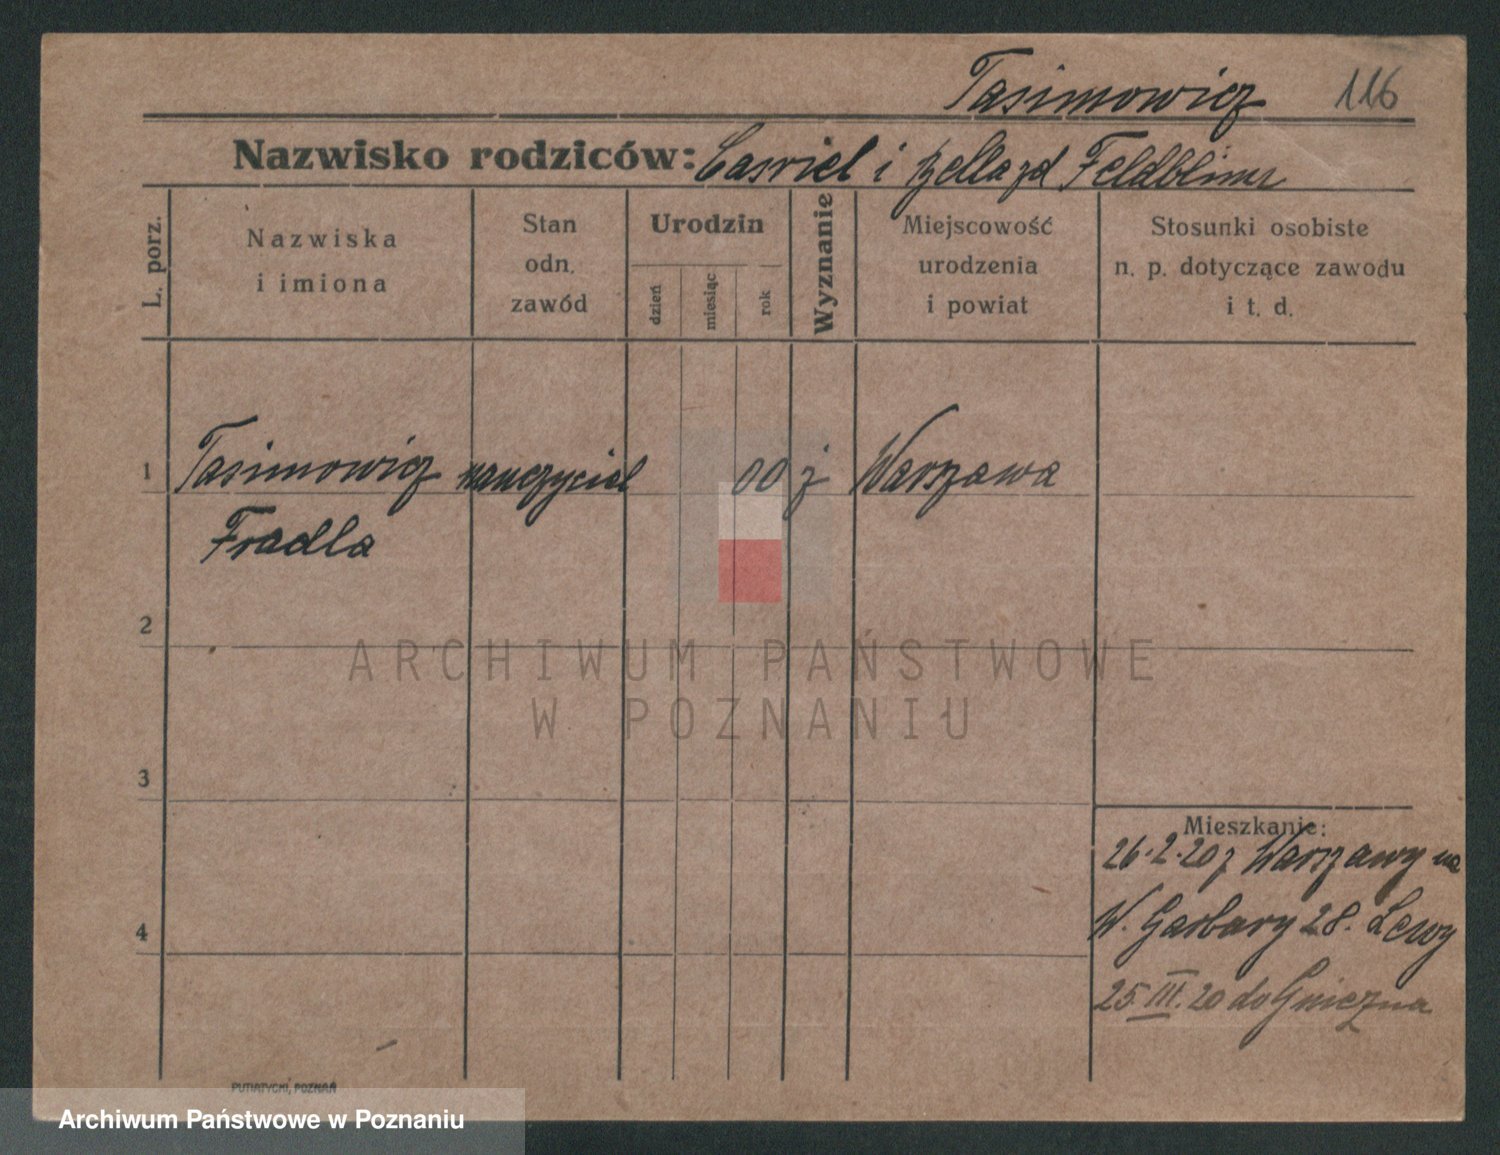 Tasimowicz 116
Nazwisko rodziców: Casriel i Bella zd Feldblum
L. porz.
Nazwiska
i imiona
Stan
odn.
zawód
Urodzin
dzień
miesiąc
rok
Wyznanie
Miejscowość
urodzenia
i powiat
Stosunki osobiste
n. p. dotyczące zawodu
i t. d.
1 Tasimowicz nauczyciel 00 ż Warszawa
Fradla
2
ARCHIWUM PAŃSTWOWE
W POZNANIU
3
Mieszkanie:
26.2.20 z Warszawy na
4 W. Garbary 28. Lewy
25.III.20 do Gniezna
PUTIATYCKI, POZNAŃ
Archiwum Państwowe w Poznaniu